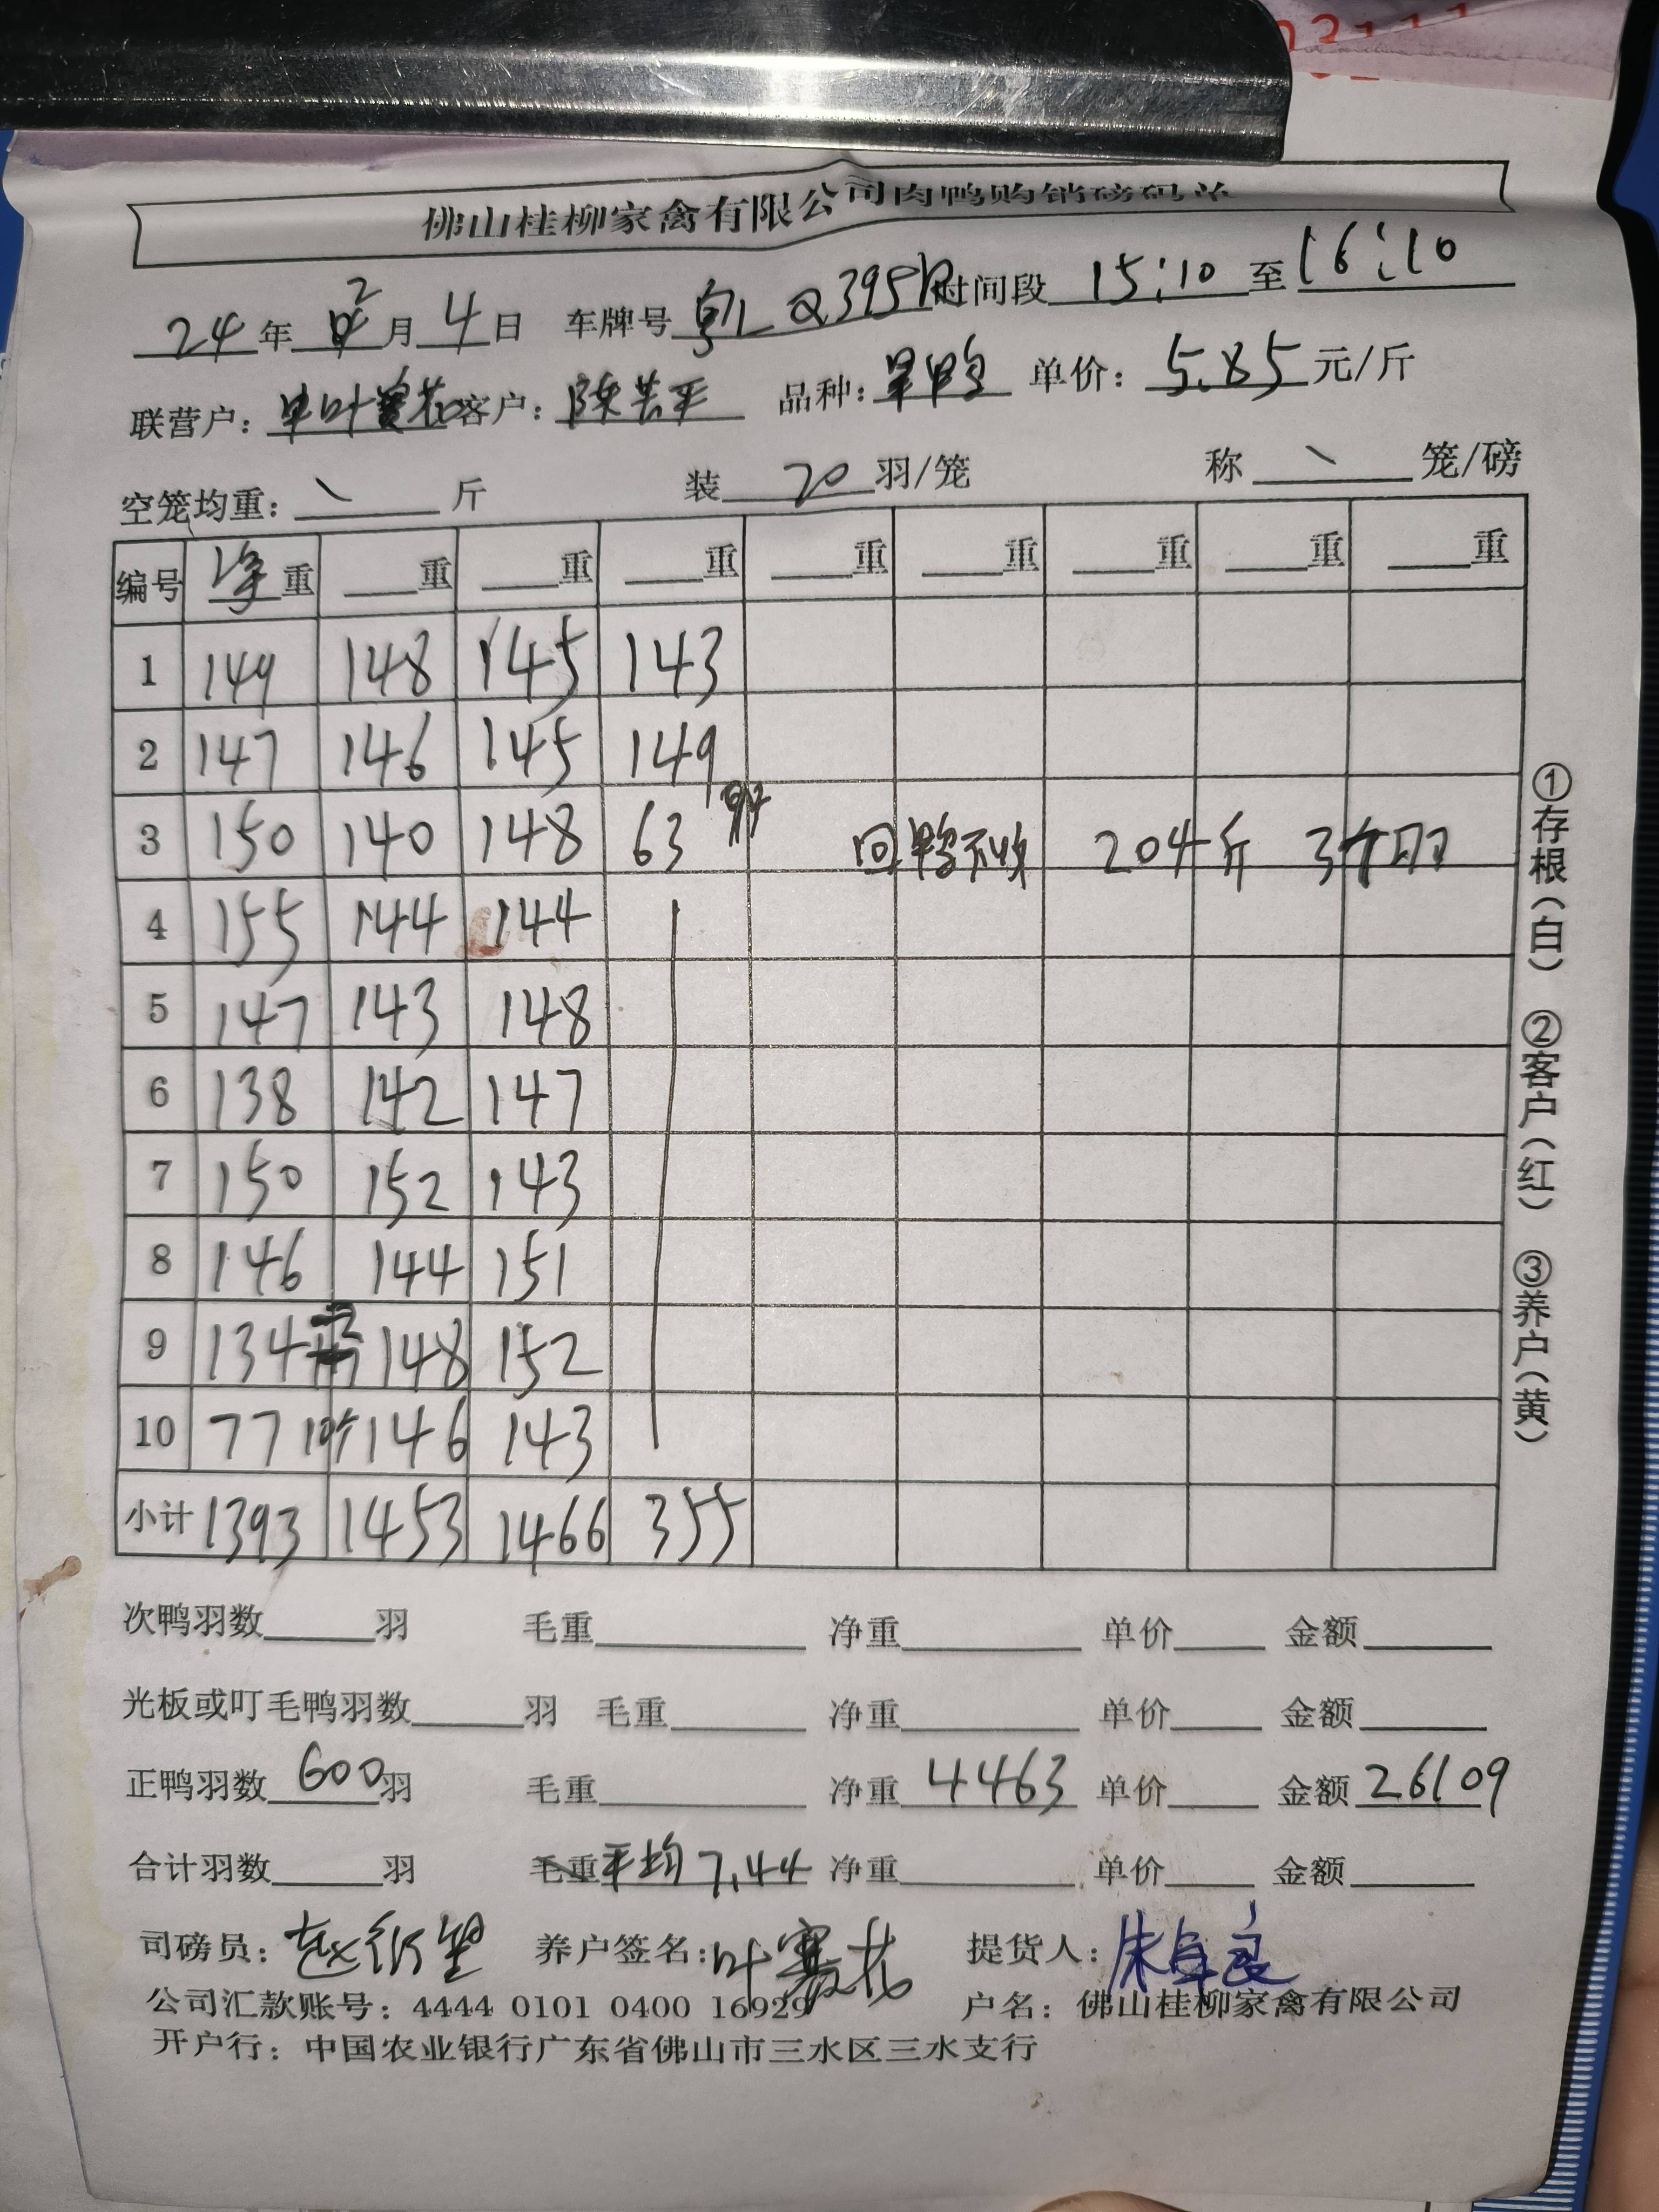 佛山桂柳家禽有限公司肉鸭购销磅码单
24年2月4日 车牌号 Q395 时间段 15:10 至 16:10
联营户: 客户: 陈芸平 品种: 旱鸭 单价: 5.85 元/斤
空笼均重: \ 斤 装 20 羽/笼 称 \ 笼/磅
编号 净重 重 重 重 重 重 重 重 重
1 149 148 145 143
2 147 146 145 149
3 150 140 148 63 回鸭 204斤 3
4 155 144 144
5 147 143 148
6 138 142 147
7 150 152 143
8 146 144 151
9 134 148 152
10 77 146 143
小计 1393 1453 1466 355
次鸭羽数 羽 毛重 净重 单价 金额
光板或叮毛鸭羽数 羽 毛重 净重 单价 金额
正鸭羽数 600 羽 毛重 净重 4463 单价 金额 26109
合计羽数 羽 毛重 平均 7.44 净重 单价 金额
司磅员: 养户签名: 叶赛花 提货人: 朱卓良
公司汇款账号: 4444 0101 0400 16929 户名: 佛山桂柳家禽有限公司
开户行: 中国农业银行广东省佛山市三水区三水支行
①存根(白) ②客户(红) ③养户(黄)